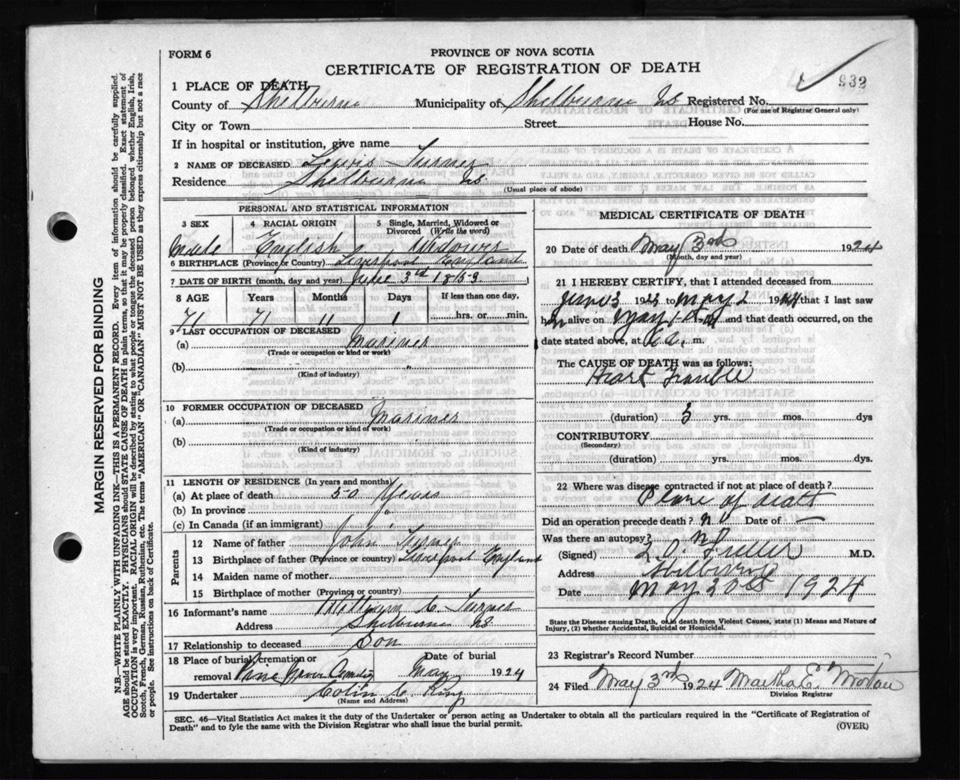 FORM 6
PROVINCE OF NOVA SCOTIA
CERTIFICATE OF REGISTRATION OF DEATH
932
1 PLACE OF DEATH
County of Shelburne Municipality of Shelburne NS Registered No.
(For use of Registrar General only)
City or Town Street House No.
If in hospital or institution, give name
2 NAME OF DECEASED Lewis Turner
Residence Shelburne NS
(Usual place of abode)
PERSONAL AND STATISTICAL INFORMATION
3 SEX 4 RACIAL ORIGIN 5 Single, Married, Widowed or Divorced (Write the word)
Male English Widower
6 BIRTHPLACE (Province or Country) Liverpool England
7 DATE OF BIRTH (month, day and year) June 3rd 1853
8 AGE Years Months Days If less than one day,
71 71 11 1 hrs. or min.
9 LAST OCCUPATION OF DECEASED
(a) Mariner
(Trade or occupation or kind or work)
(b) "
(Kind of industry)
10 FORMER OCCUPATION OF DECEASED
(a) Mariner
(Trade or occupation or kind or work)
(b)
(Kind of industry)
11 LENGTH OF RESIDENCE (In years and months)
(a) At place of death 50 Years
(b) In province "
(c) In Canada (if an immigrant) "
Parents
12 Name of father John Turner
13 Birthplace of father (Province or country) Liverpool England
14 Maiden name of mother
15 Birthplace of mother (Province or country)
16 Informant's name William C. Turner
Address Shelburne NS
17 Relationship to deceased Son
18 Place of burial, cremation or removal Pine Grove Cemetery Date of burial May 1924
19 Undertaker Colin C. King
(Name and Address)
MEDICAL CERTIFICATE OF DEATH
20 Date of death May 3rd 1924
(Month, day and year)
21 I HEREBY CERTIFY, that I attended deceased from
June 3 1923 to May 2 1924 that I last saw
him alive on May 1st and that death occurred, on the
date stated above, at 6 a. m.
The CAUSE OF DEATH was as follows:
Heart Trouble
(duration) 3 yrs. mos. dys
CONTRIBUTORY
(Secondary)
(duration) yrs. mos. dys.
22 Where was disease contracted if not at place of death?
Place of death
Did an operation precede death? N Date of —
Was there an autopsy? N
(Signed) L. O. Fuller M.D.
Address Shelburne
Date May 3rd 1924
State the Disease causing Death, or in death from Violent Causes, state (1) Means and Nature of Injury, (2) whether Accidental, Suicidal or Homicidal.
23 Registrar's Record Number
24 Filed May 3rd 1924 Martha E. Morton
Division Registrar
SEC. 46—Vital Statistics Act makes it the duty of the Undertaker or person acting as Undertaker to obtain all the particulars required in the "Certificate of Registration of Death" and to fyle the same with the Division Registrar who shall issue the burial permit.
(OVER)
MARGIN RESERVED FOR BINDING
N.B.—WRITE PLAINLY WITH UNFADING INK—THIS IS A PERMANENT RECORD. Every item of information should be carefully supplied.
AGE should be stated EXACTLY. PHYSICIANS should STATE CAUSE OF DEATH in plain terms, so that it may be properly classified. Exact statement of
OCCUPATION is very important. RACIAL ORIGIN will be described by stating to what people or tongue the deceased person belonged whether English, Irish,
Scotch, French, German, Russian, Ruthenian, etc. The terms "AMERICAN" OR "CANADIAN" MUST NOT BE USED as they express citizenship but not a race
or people. See instructions on back of Certificate.